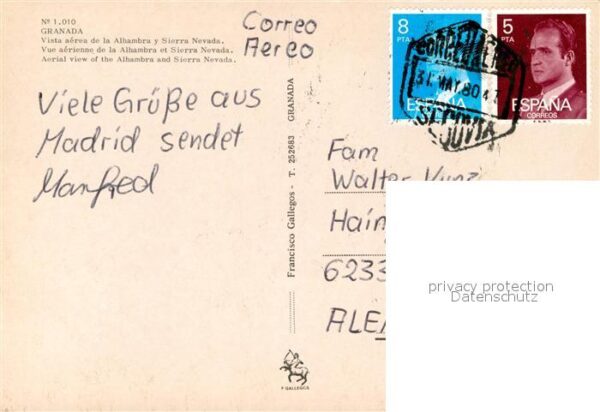 Nº 1.010
GRANADA
Vista aérea de la Alhambra y Sierra Nevada.
Vue aérienne de la Alhambra et Sierra Nevada.
Aerial view of the Alhambra and Sierra Nevada.
Correo
Aereo
8
PTA
ESPAÑA
5
PTA
ESPAÑA
CORREOS
CORREO AEREO
31 MAY 80
SEGOVIA
Viele Grüße aus
Madrid sendet
Manfred
Francisco Gallegos - T. 252683 GRANADA
Fam
Walter Kunz
Hain
6233
ALE
F GALLEGOS
privacy protection
Datenschutz